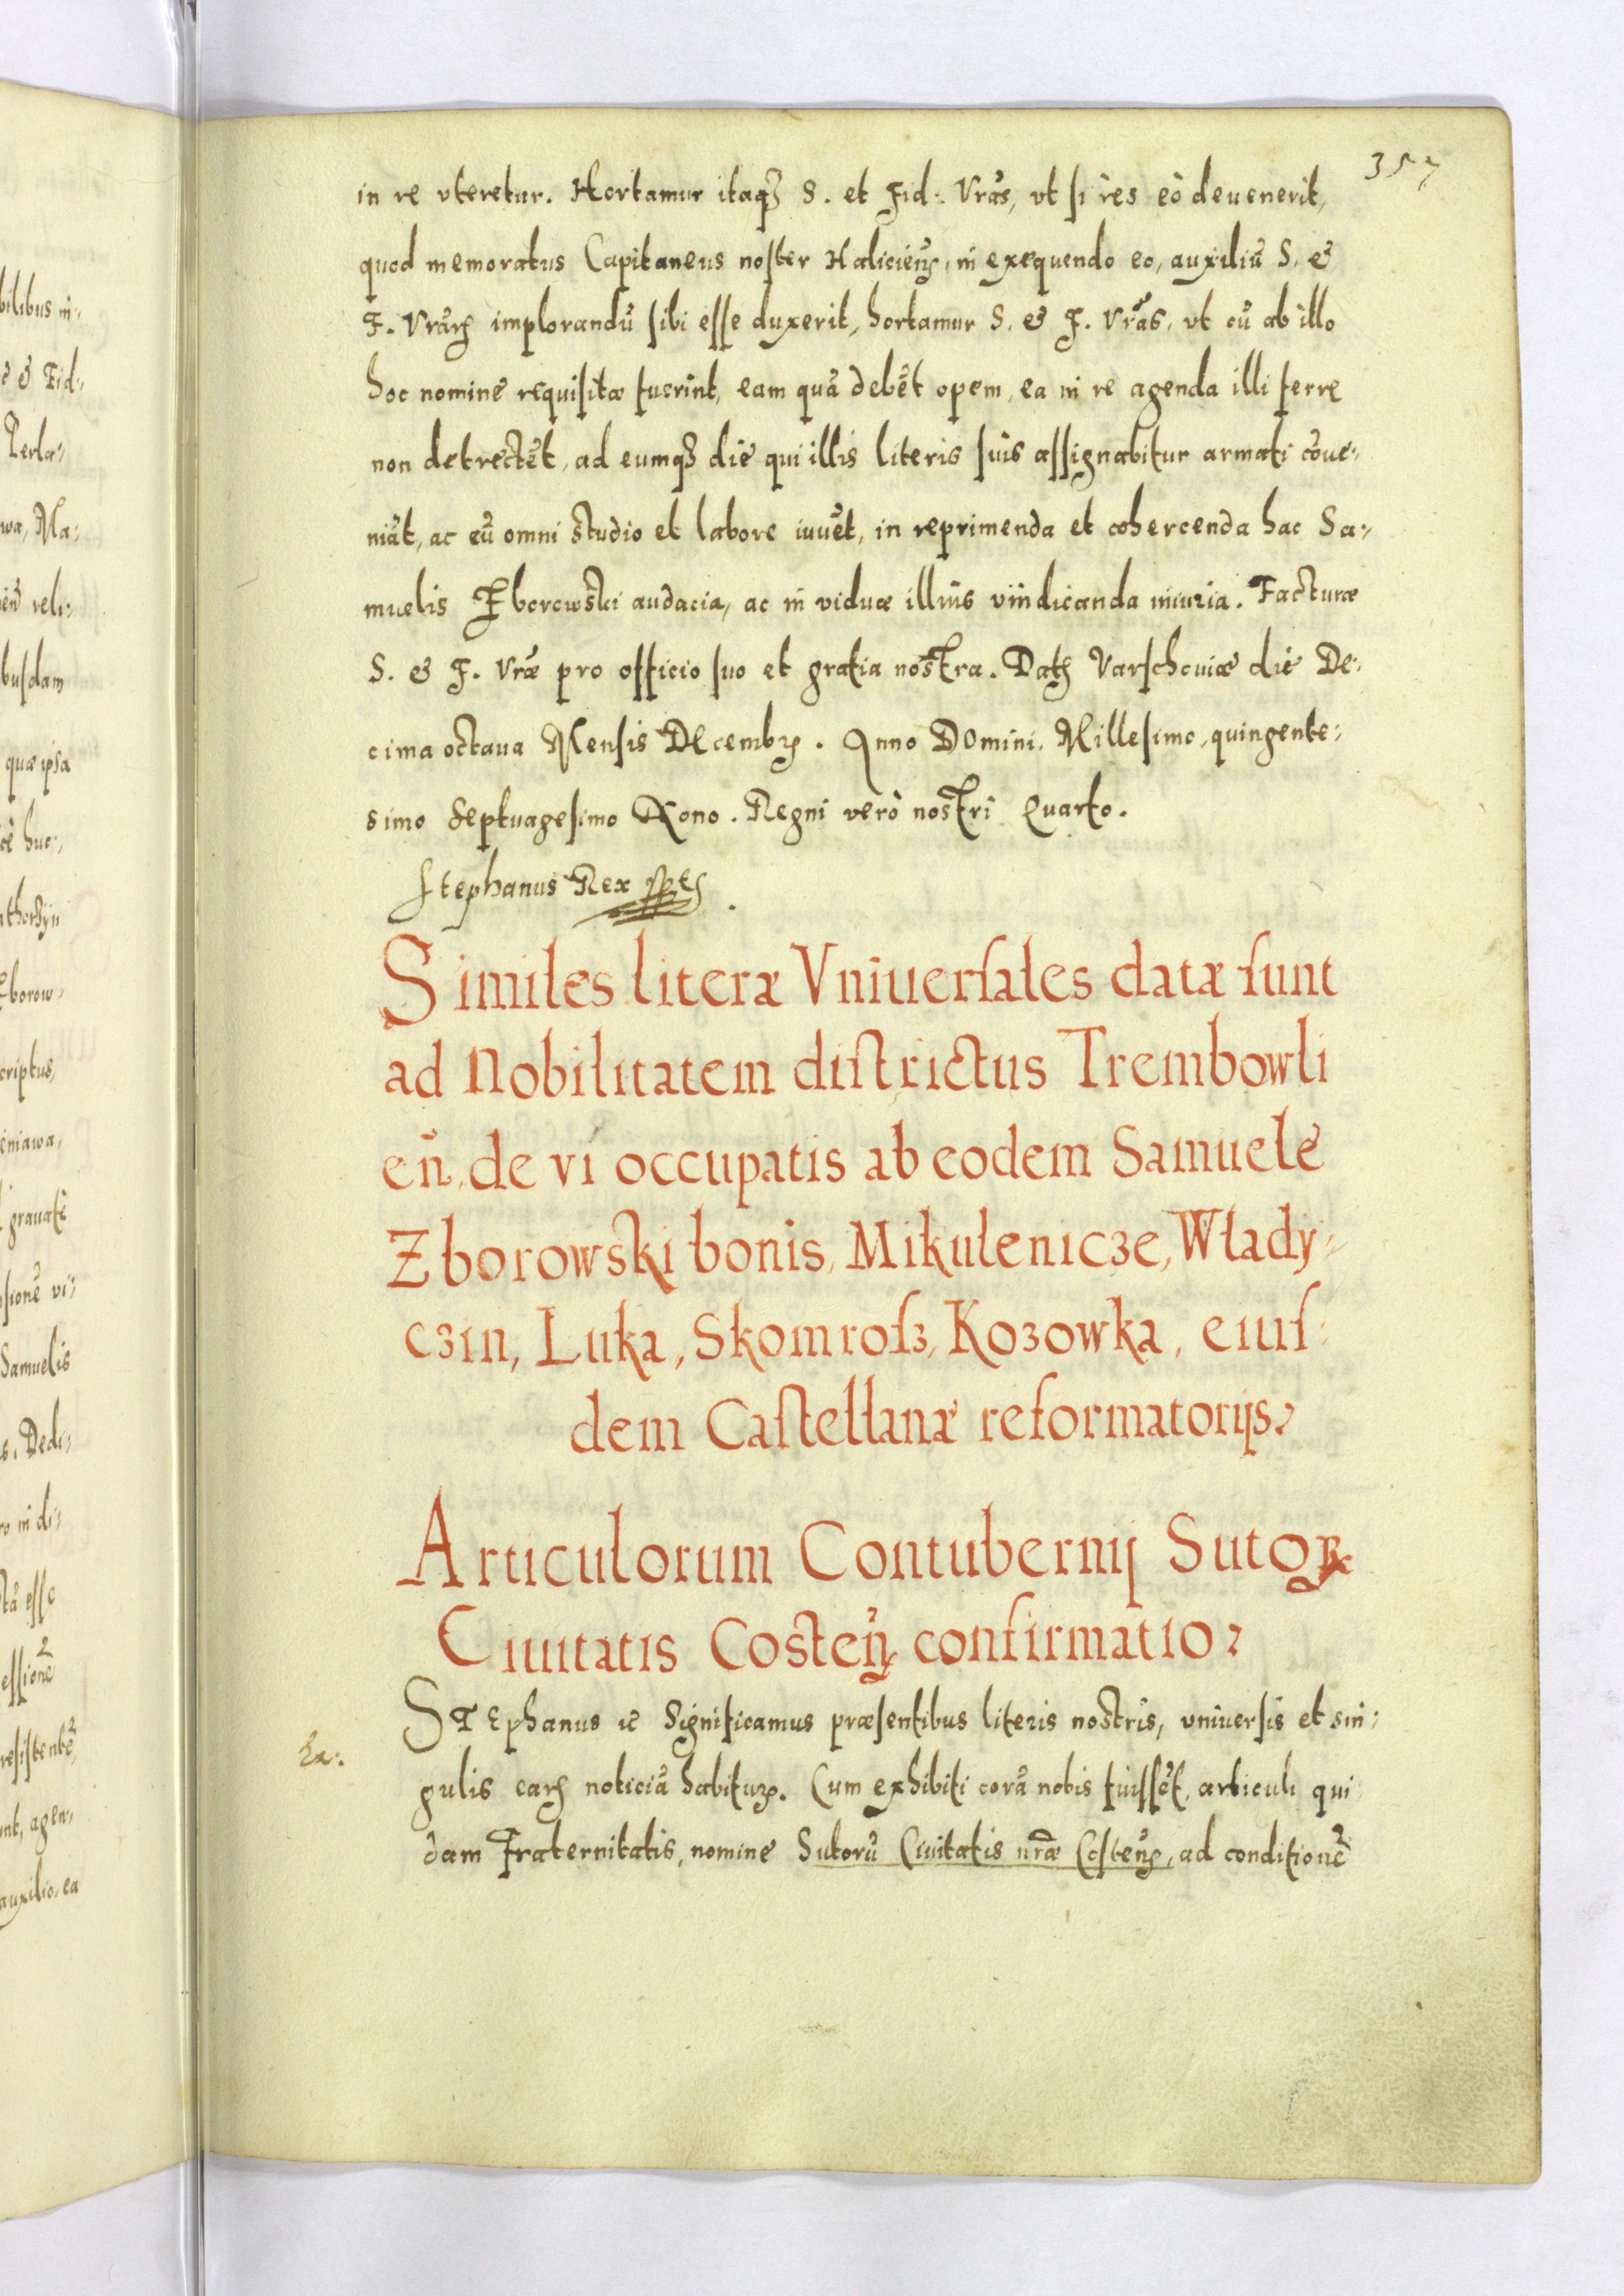 357
in re vteretur. Hortamur itaq₃ S. et Fid: Vrās, vt si res eò deuenerit,
quod memoratus Capitaneus noster Halicień, in exequendo eo, auxiliū S. &
F. Vrār̃ implorandū sibi esse duxerit, hortamur S. & F. Vrās, vt cū ab illo
hoc nomine requisitæ fuerint, eam quā debēt opem, ea in re agenda illi ferre
non detrectēt, ad eumq₃ diē qui illis literis suis assignabitur armati cōue:
niāt, ac eū omni studio et labore iuuēt, in reprimenda et cohercenda hac Sa:
muelis Zborowski audacia, ac in viduæ illius vindicanda iniuria. Facturæ
S. & F. Vræ̃ pro officio suo et gratia nostra. Datȝ Varschouiæ die De:
cima octaua Mensis Decembꝶ. Anno Domini, Millesimo, quingente:
simo Septuagesimo Nono. Regni verò nostri Quarto.
Stephanus Rex
Similes literæ Vniuersales datæ sunt
ad Nobilitatem districtus Trembowli
eñ, de vi occupatis ab eodem Samuele
Zborowski bonis, Mikulenicze, Wlady:
czin, Luka, Skomrosz, Kozowka, eius:
dem Castellanæ reformatorijs.
Articulorum Contubernij Sutoꝝ
Ciuitatis Costeñ confirmatio.
STEphanus ꝛc Significamus præsentibus literis nostris, vniuersis et sin:
gulis earȝ noticiā habituꝶ. Cum exhibiti corā nobis fuissēt, articuli qui
dam Fraternitatis, nomine Sutorū Ciuitatis nræ̃ Costeñ, ad conditionē